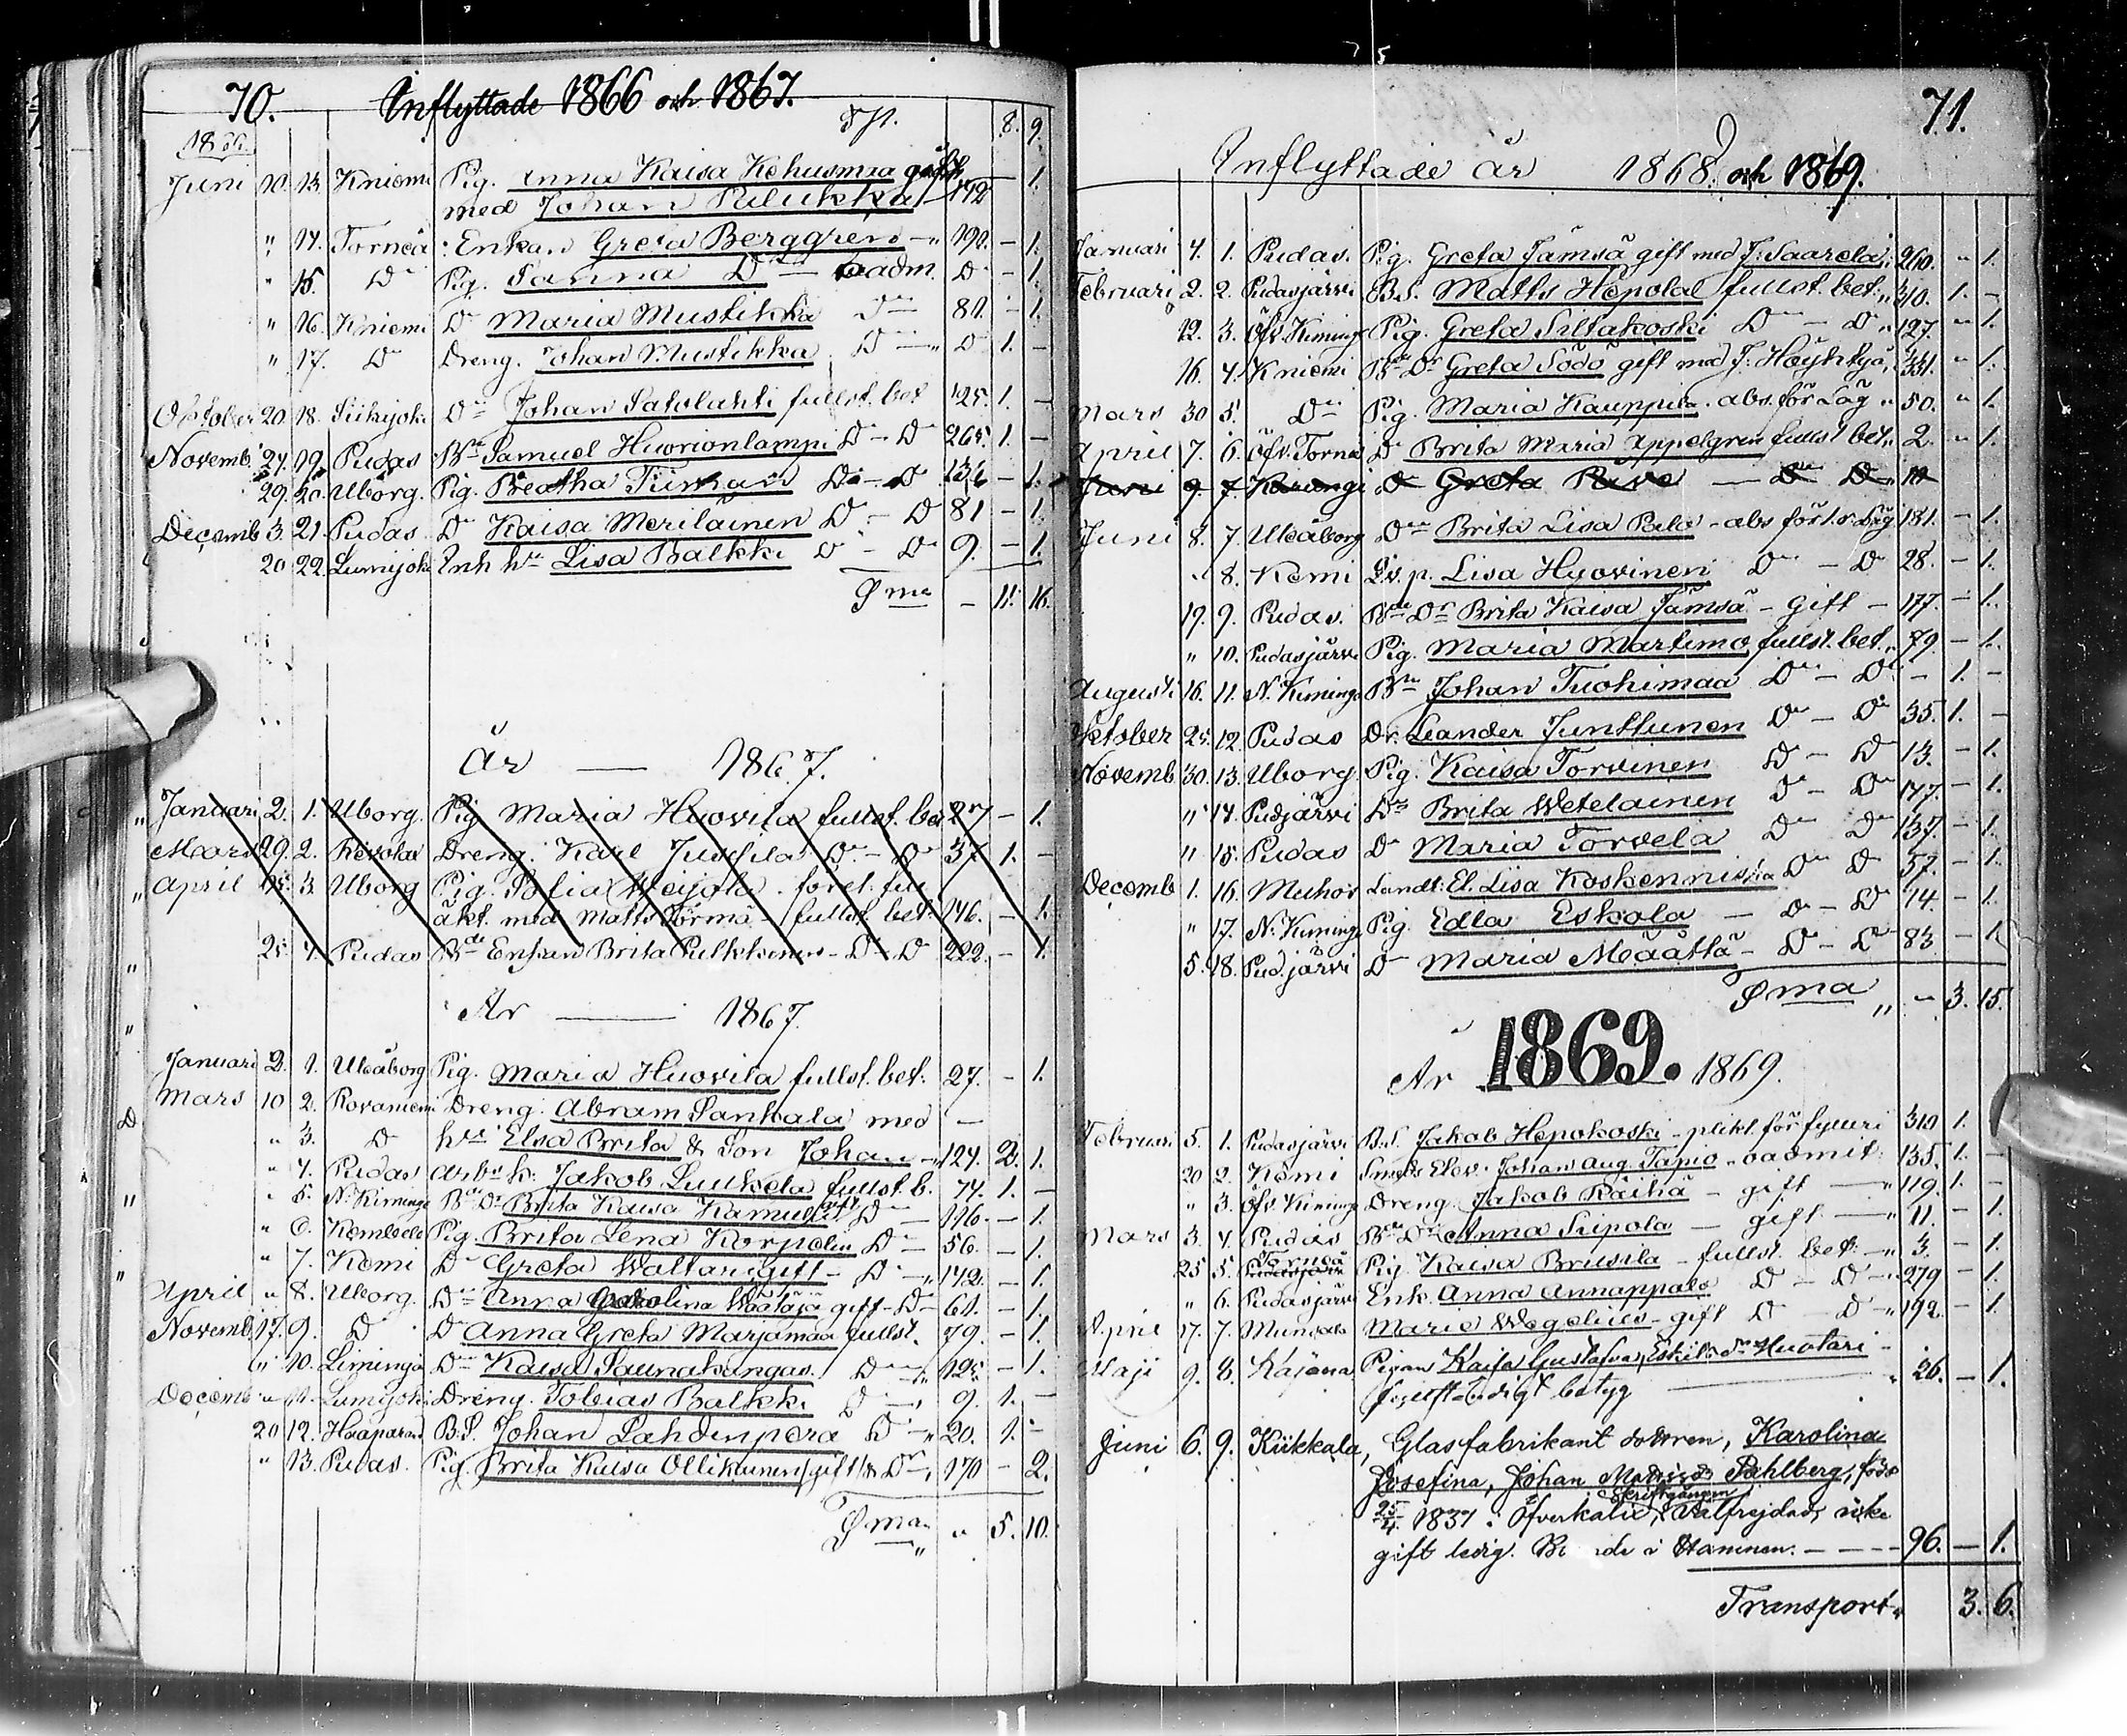 70. Inflyttade 1866 och 1867.
8. 9.
1866.
Juni 10. 13. Kniemi Pig. Anna Kaisa Kehusmaa gift
med Johan Pulukka 142 - 1.
" 14. Torneå Enkan Greta Berggren - " 190. - 1.
" 15. Do Pig. Sanna Do - oadm. Do - 1.
" 16. Kniemi Do Maria Mustikka Do 81. - 1.
" 17. Do Dreng. Johan Mustikka Do - " Do 1. -
October 20. 18. Siikijoki Do Johan Satolahti fullst. bet 125. 1. -
Novemb. 24. 19. Pudas Bde Samuel Huorionlampi Do - Do 265. 1. -
29. 20. Uborg. Pig. Beatha Do - Do 136 - 1.
Decemb 3. 21. Pudas Do Kaisa Meriläinen Do - Do 81 - 1.
20 22. Lumijoki Enk hu Lisa Balkki Do - Do 9. - 1.
Sma - 11. 16.
År — 1867.
" Januari 2. 1. Uborg. Pig Maria Huovila fullst. bet 27 - 1.
Mars 29. 2. Dreng. Karl Do - Do 37 1. -
" April 15. 3. Uborg Pig. Sofia Weijola
äkt. med Matts Törmä - fullst. bet. 146. - 1.
" 25. 4. Pudas Bde Enkan Brita Pulkkinen - Do Do 222. - 1.
" År — 1867.
Januari 2. 1. Uleåborg Pig. Maria Huovila fullst. bet. 27. - 1.
Mars 10 2. Rovaniemi Dreng. Abram Sankala med -
" 3. Do hu Elsa Brita & Son Johan - " 124. 2. 1.
" 4. Pudas Jakob Luukela fullst. b. 74. 1. -
" 5. N. Kiminge Bde Dr Brita Kaisa Do - 116. - 1.
" 6. Kembele Pig. Brita Lena Karpelin Do - 56. - 1.
" 7. Kemi Do Greta Waltari gift - Do - " 142. - 1.
April " 8. Uborg. Do Anna Carolina Waataja gift - Do - 61. - 1.
Novemb. 17. 9. Do Do Anna Greta Marjamaa fullst. 79. - 1.
" 10. Liminga Do Kaisa Saunakangas. Do - " 125. - 1.
Decemb " 11. Lumijoki Dreng. Tobias Balkki Do - " 9. 1. -
20 12. Haaparan B.S. Johan Lahdenperä Do - " 20. 1. -
" 13. Pudas. Pig. Brita Kaisa Ollikainen /gift/ & Dr - " 170 - 2.
Sma " 5. 10.
71.
Inflyttade år 1868. och 1869.
Januari 4. 1. Pudas. Pig. Greta Jämsä gift med J. Saarela " 260. " 1.
Februari 2. 2. Pudasjärvi B.S. Matts Hepola fullst. bet. " 310. 1. -
12. 3. Öfv. Kiminge Pig. Greta Siltakoski Do - Do " 127. " 1.
16. 4. Kniemi Bde Dr Greta Södö gift med J. Höyhtyä " 331. " 1.
Mars 30 5. Do Pig. Maria Kauppila abs. för Läg " 50. " 1.
April 7. 6. Öfv. Torneå Do Brita Maria Appelgren fullst bet. " 2. " 1.
Juni 9. 7. Karungi Do Greta - Do Do 10
Juni 8. 7. Uleåborg Do Brita Lisa Palo - abs för Läg 181. - 1.
" 8. Kemi Lisa Hyovinen Do - Do 28. - 1.
19. 9. Pudas. Bde Dr Brita Kaisa Jämsä - Gift - 177. - 1.
" 10. Pudasjärvi Pig. Maria Martimo fullst. bet. " 79. - 1.
Augusti 16. 11. N. Kiminge Bde Johan Tuohimaa Do - Do - 1. -
Oktober 25. 12. Pudas Dr. Leander Junttunen Do - Do 35. 1. -
Novemb. 30. 13. Uborg. Pig. Kaisa Torvinen Do - Do 13. - 1.
" 14. Pudjärvi Do Brita Wetelainen Do - Do 147. - 1.
" 15. Pudas Do Maria Torvela Do Do 137. - 1.
Decemb 1. 16. Muhos Landt. El. Lisa Koskenniska Do Do 57. - 1.
" 17. N. Kiminge Pig. Edla Eskola - Do - Do 14. - 1.
5. 18. Pud.järvi Do Maria Määttä - Do - Do 83 - 1.
Sma " " 3. 15.
År 1869. 1869.
Februari 5. 1. Pudasjärvi B.S. Jakob Hepokoski - plikt. för fylleri 310 1.
20 2. Kemi Smeds Elev. Johan Aug. Tapio - oadmit. 135. 1. -
" 3. Öfv. Kiminge Dreng. Jakob Räihä - gift — " 119. 1. -
Mars 3. 4. Pudas Bde Dr Anna Siipola - gift — " 11. - 1.
25 5. Torneå Pig. Kaisa Brusila - fullst. bet. - " 3. - 1.
" 6. Pudasjärvi Enk. Anna Annappalo Do - Do - " 279 - 1.
April 17. 7. Munsala Maria Wegelius - gift Do Do " 192. - 1.
Maji 9. 8. Kajana Pigan Kaisa Gustafva Eskilsdr Huotari
fullständigt betyg — " 26. - 1.
Juni 6. 9. Kiikkala, Glasfabrikant dottren, Karolina
Josefina, Johan Pahlberg, född
25/4 1837 i Öfverkalix, Välfrejdad, icke
gift ledig. i Staminen. - - - 96. - 1.
Transport " 3. 6.